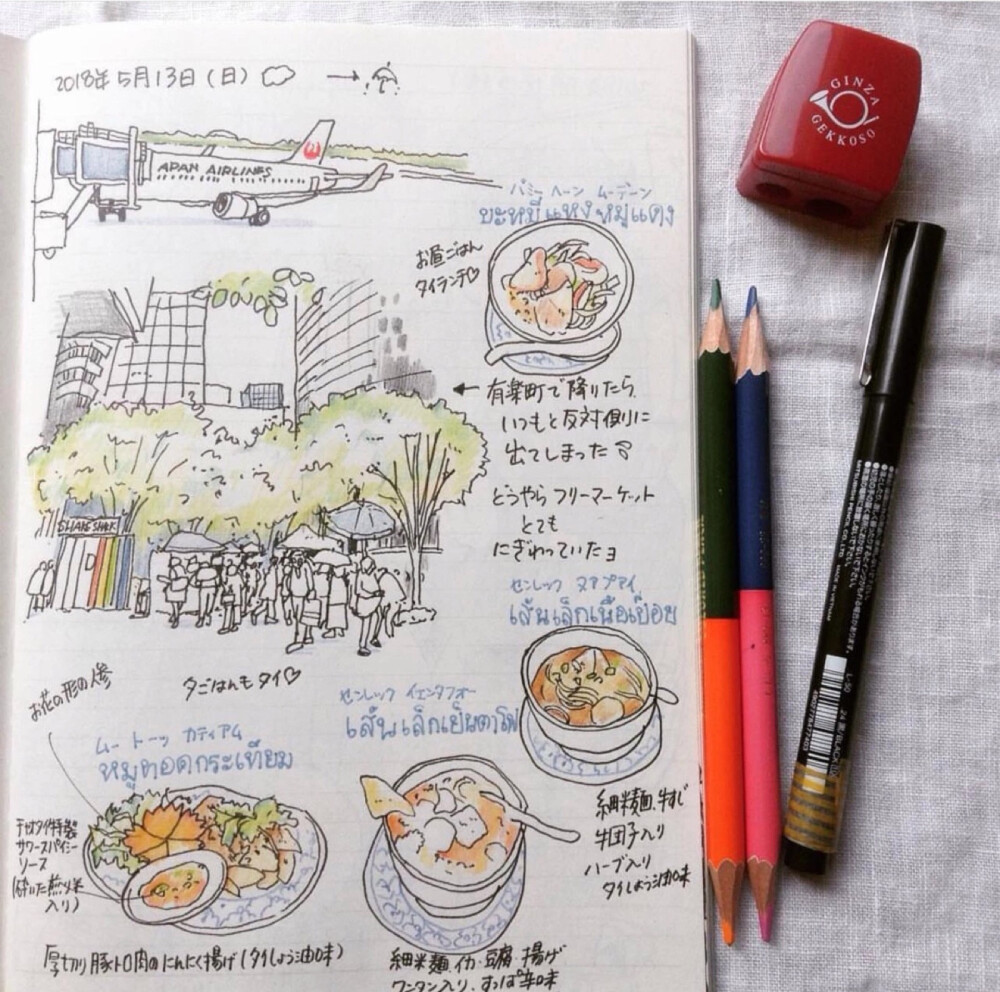 2018年5月13日(日)
APAN AIRLINES
バミー ヘーン ムーデーン
บะหมี่แห้งหมูแดง
お昼ごはん
タイランチ♡
← 有楽町で降りたら
いつもと反対側に
出てしまった
どうやら フリーマーケット
とても
にぎわっていたヨ
SHAKE SHACK
センレック ヌアプアイ
เส้นเล็กเนื้อเปื่อย
細米麺、牛すじ
牛団子入り
ハーブ入り
タイしょう油味
お花の形の人参
夕ごはんもタイ♡
センレック イェンタフォー
เส้นเล็กเย็นตาโฟ
ムー トーッ カティアム
หมูทอดกระเทียม
サワースパイシー
ソース
(砕いた煎り米
入り)
厚切り豚トロ肉のにんにく揚げ(タイしょう油味)
細米麺、イカ・豆腐・揚げ
ワンタン入り、すっぱ辛味
GINZA
GEKKOSO
MITSUBISHI PENCIL CO., LTD.
MADE IN VIETNAM